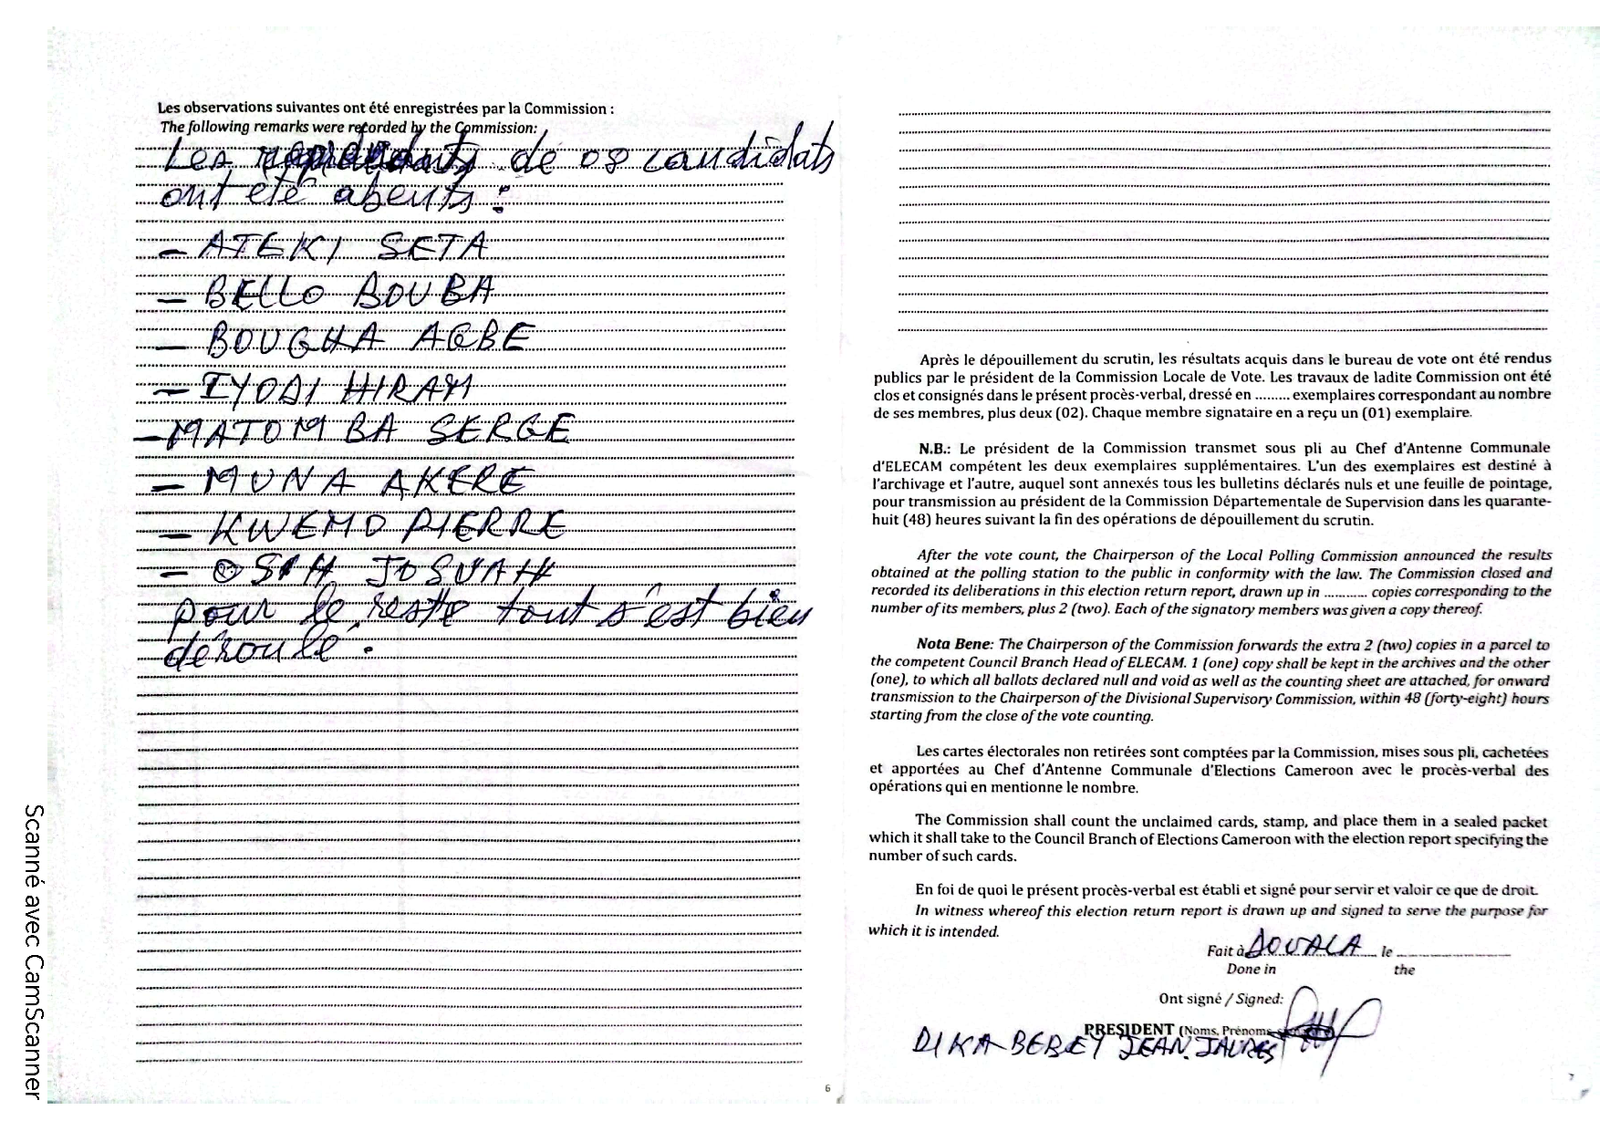 Les observations suivantes ont été enregistrées par la Commission :
The following remarks were recorded by the Commission:
Les de 08 candidats
ont été absents :
- ATEKI SETA
- BELLO BOUBA
- BOUGHA AGBE
- IYODI HIRAM
- MATOMBA SERGE
- MUNA AKERE
- KWEMO PIERRE
- OSIH JOSUAH
pour le reste tout s'est bien
déroulé.
6
Après le dépouillement du scrutin, les résultats acquis dans le bureau de vote ont été rendus
publics par le président de la Commission Locale de Vote. Les travaux de ladite Commission ont été
clos et consignés dans le présent procès-verbal, dressé en ......... exemplaires correspondant au nombre
de ses membres, plus deux (02). Chaque membre signataire en a reçu un (01) exemplaire.
N.B.: Le président de la Commission transmet sous pli au Chef d'Antenne Communale
d'ELECAM compétent les deux exemplaires supplémentaires. L'un des exemplaires est destiné à
l'archivage et l'autre, auquel sont annexés tous les bulletins déclarés nuls et une feuille de pointage,
pour transmission au président de la Commission Départementale de Supervision dans les quarante-
huit (48) heures suivant la fin des opérations de dépouillement du scrutin.
After the vote count, the Chairperson of the Local Polling Commission announced the results
obtained at the polling station to the public in conformity with the law. The Commission closed and
recorded its deliberations in this election return report, drawn up in ........... copies corresponding to the
number of its members, plus 2 (two). Each of the signatory members was given a copy thereof.
Nota Bene: The Chairperson of the Commission forwards the extra 2 (two) copies in a parcel to
the competent Council Branch Head of ELECAM. 1 (one) copy shall be kept in the archives and the other
(one), to which all ballots declared null and void as well as the counting sheet are attached, for onward
transmission to the Chairperson of the Divisional Supervisory Commission, within 48 (forty-eight) hours
starting from the close of the vote counting.
Les cartes électorales non retirées sont comptées par la Commission, mises sous pli, cachetées
et apportées au Chef d'Antenne Communale d'Elections Cameroon avec le procès-verbal des
opérations qui en mentionne le nombre.
The Commission shall count the unclaimed cards, stamp, and place them in a sealed packet
which it shall take to the Council Branch of Elections Cameroon with the election report specifying the
number of such cards.
En foi de quoi le présent procès-verbal est établi et signé pour servir et valoir ce que de droit.
In witness whereof this election return report is drawn up and signed to serve the purpose for
which it is intended.
Fait à DOUALA le
Done in the
Ont signé / Signed:
PRESIDENT (Noms, Prénoms
DIKA BEBEY JEAN JAURES
7
Scanné avec CamScanner